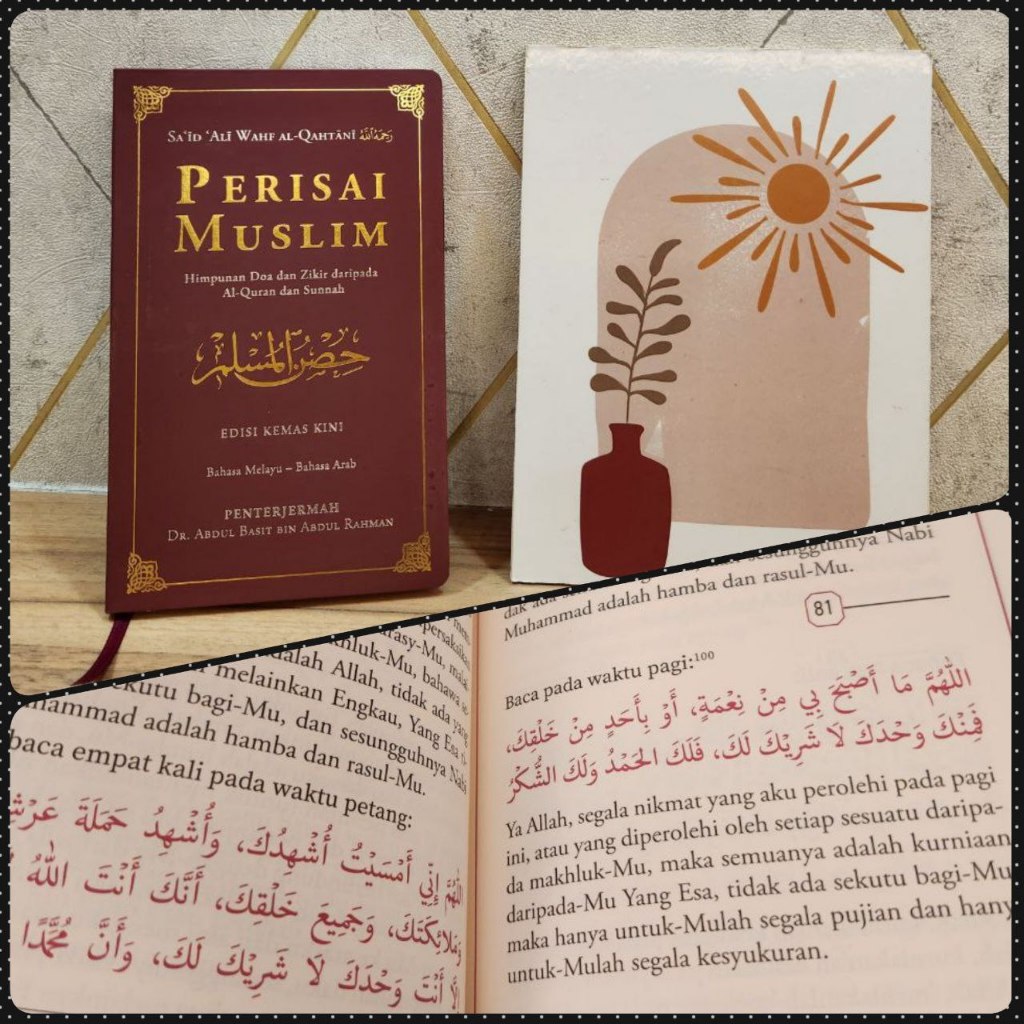 SA‘ĪD ‘ALĪ WAHF AL-QAHTĀNĪ رَحِمَهُ اللَّهُ
PERISAI
MUSLIM
Himpunan Doa dan Zikir daripada
Al-Quran dan Sunnah
حِصْنُ الْمُسْلِمِ
EDISI KEMAS KINI
Bahasa Melayu – Bahasa Arab
PENTERJERMAH
DR. ABDUL BASIT BIN ABDUL RAHMAN
rasy-Mu, malai
khluk-Mu, bahawa
dalah Allah, tidak ada yang
melainkan Engkau, Yang Esa ti-
sekutu bagi-Mu, dan sesungguhnya Nabi
hammad adalah hamba dan rasul-Mu.
baca empat kali pada waktu petang:
اللَّهُمَّ إِنِّي أَمْسَيْتُ أُشْهِدُكَ، وَأُشْهِدُ حَمَلَةَ عَرْشِ
وَمَلَائِكَتَكَ، وَجَمِيعَ خَلْقِكَ، أَنَّكَ أَنْتَ اللَّهُ
إِلَّا أَنْتَ وَحْدَكَ لَا شَرِيْكَ لَكَ، وَأَنَّ مُحَمَّدًا
dak ada sesungguhnya Nabi
Muhammad adalah hamba dan rasul-Mu.
81
Baca pada waktu pagi:¹⁰⁰
اللَّهُمَّ مَا أَصْبَحَ بِي مِنْ نِعْمَةٍ، أَوْ بِأَحَدٍ مِنْ خَلْقِكَ،
فَمِنْكَ وَحْدَكَ لَا شَرِيْكَ لَكَ، فَلَكَ الحَمْدُ وَلَكَ الشُّكْرُ
Ya Allah, segala nikmat yang aku perolehi pada pagi
ini, atau yang diperolehi oleh setiap sesuatu daripa-
da makhluk-Mu, maka semuanya adalah kurniaan
daripada-Mu Yang Esa, tidak ada sekutu bagi-Mu
maka hanya untuk-Mulah segala pujian dan hany
untuk-Mulah segala kesyukuran.